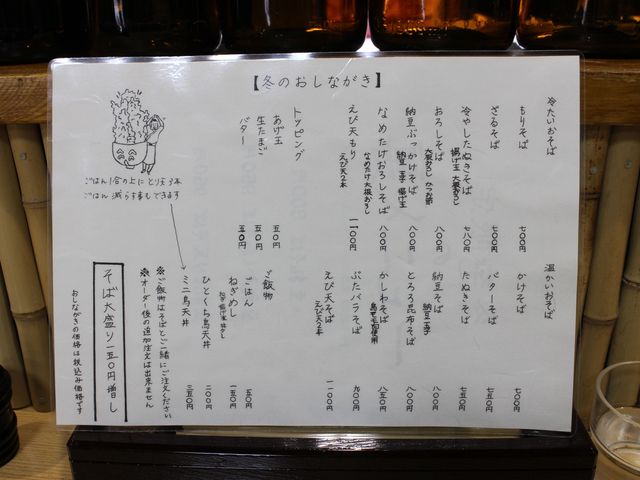 【冬のおしながき】
冷たいおそば
もりそば 七〇〇円
ざるそば 七〇〇円
冷やしたぬきそば 揚げ玉 大根おろし 七八〇円
おろしそば 大根おろし かつお節 八〇〇円
納豆ぶっかけそば 納豆 玉子 揚げ玉 八〇〇円
なめたけおろしそば なめたけ 大根おろし 八〇〇円
えび天もり えび天2本 一一〇〇円
トッピング
あげ玉 五〇円
生たまご 五〇円
バター 五〇円
温かいおそば
かけそば 七〇〇円
バターそば 七五〇円
たぬきそば 七五〇円
納豆そば 納豆 玉子 八〇〇円
とろろ昆布そば 八〇〇円
かしわそば 八五〇円
ぶたバラそば 九〇〇円
えび天そば えび天2本 一一〇〇円
ご飯物
ごはん 五〇円
ねぎめし 一五〇円
ひとくち鳥天丼 二〇〇円
ミニ鳥天丼 三五〇円
ごはん1合の上にとり天3本
ごはん減らす事もできます
※ご飯物はそばとご一緒にご注文ください
※オーダー後の追加注文は出来ません
そば大盛り一五〇円増し
おしながきの価格は税込み価格です